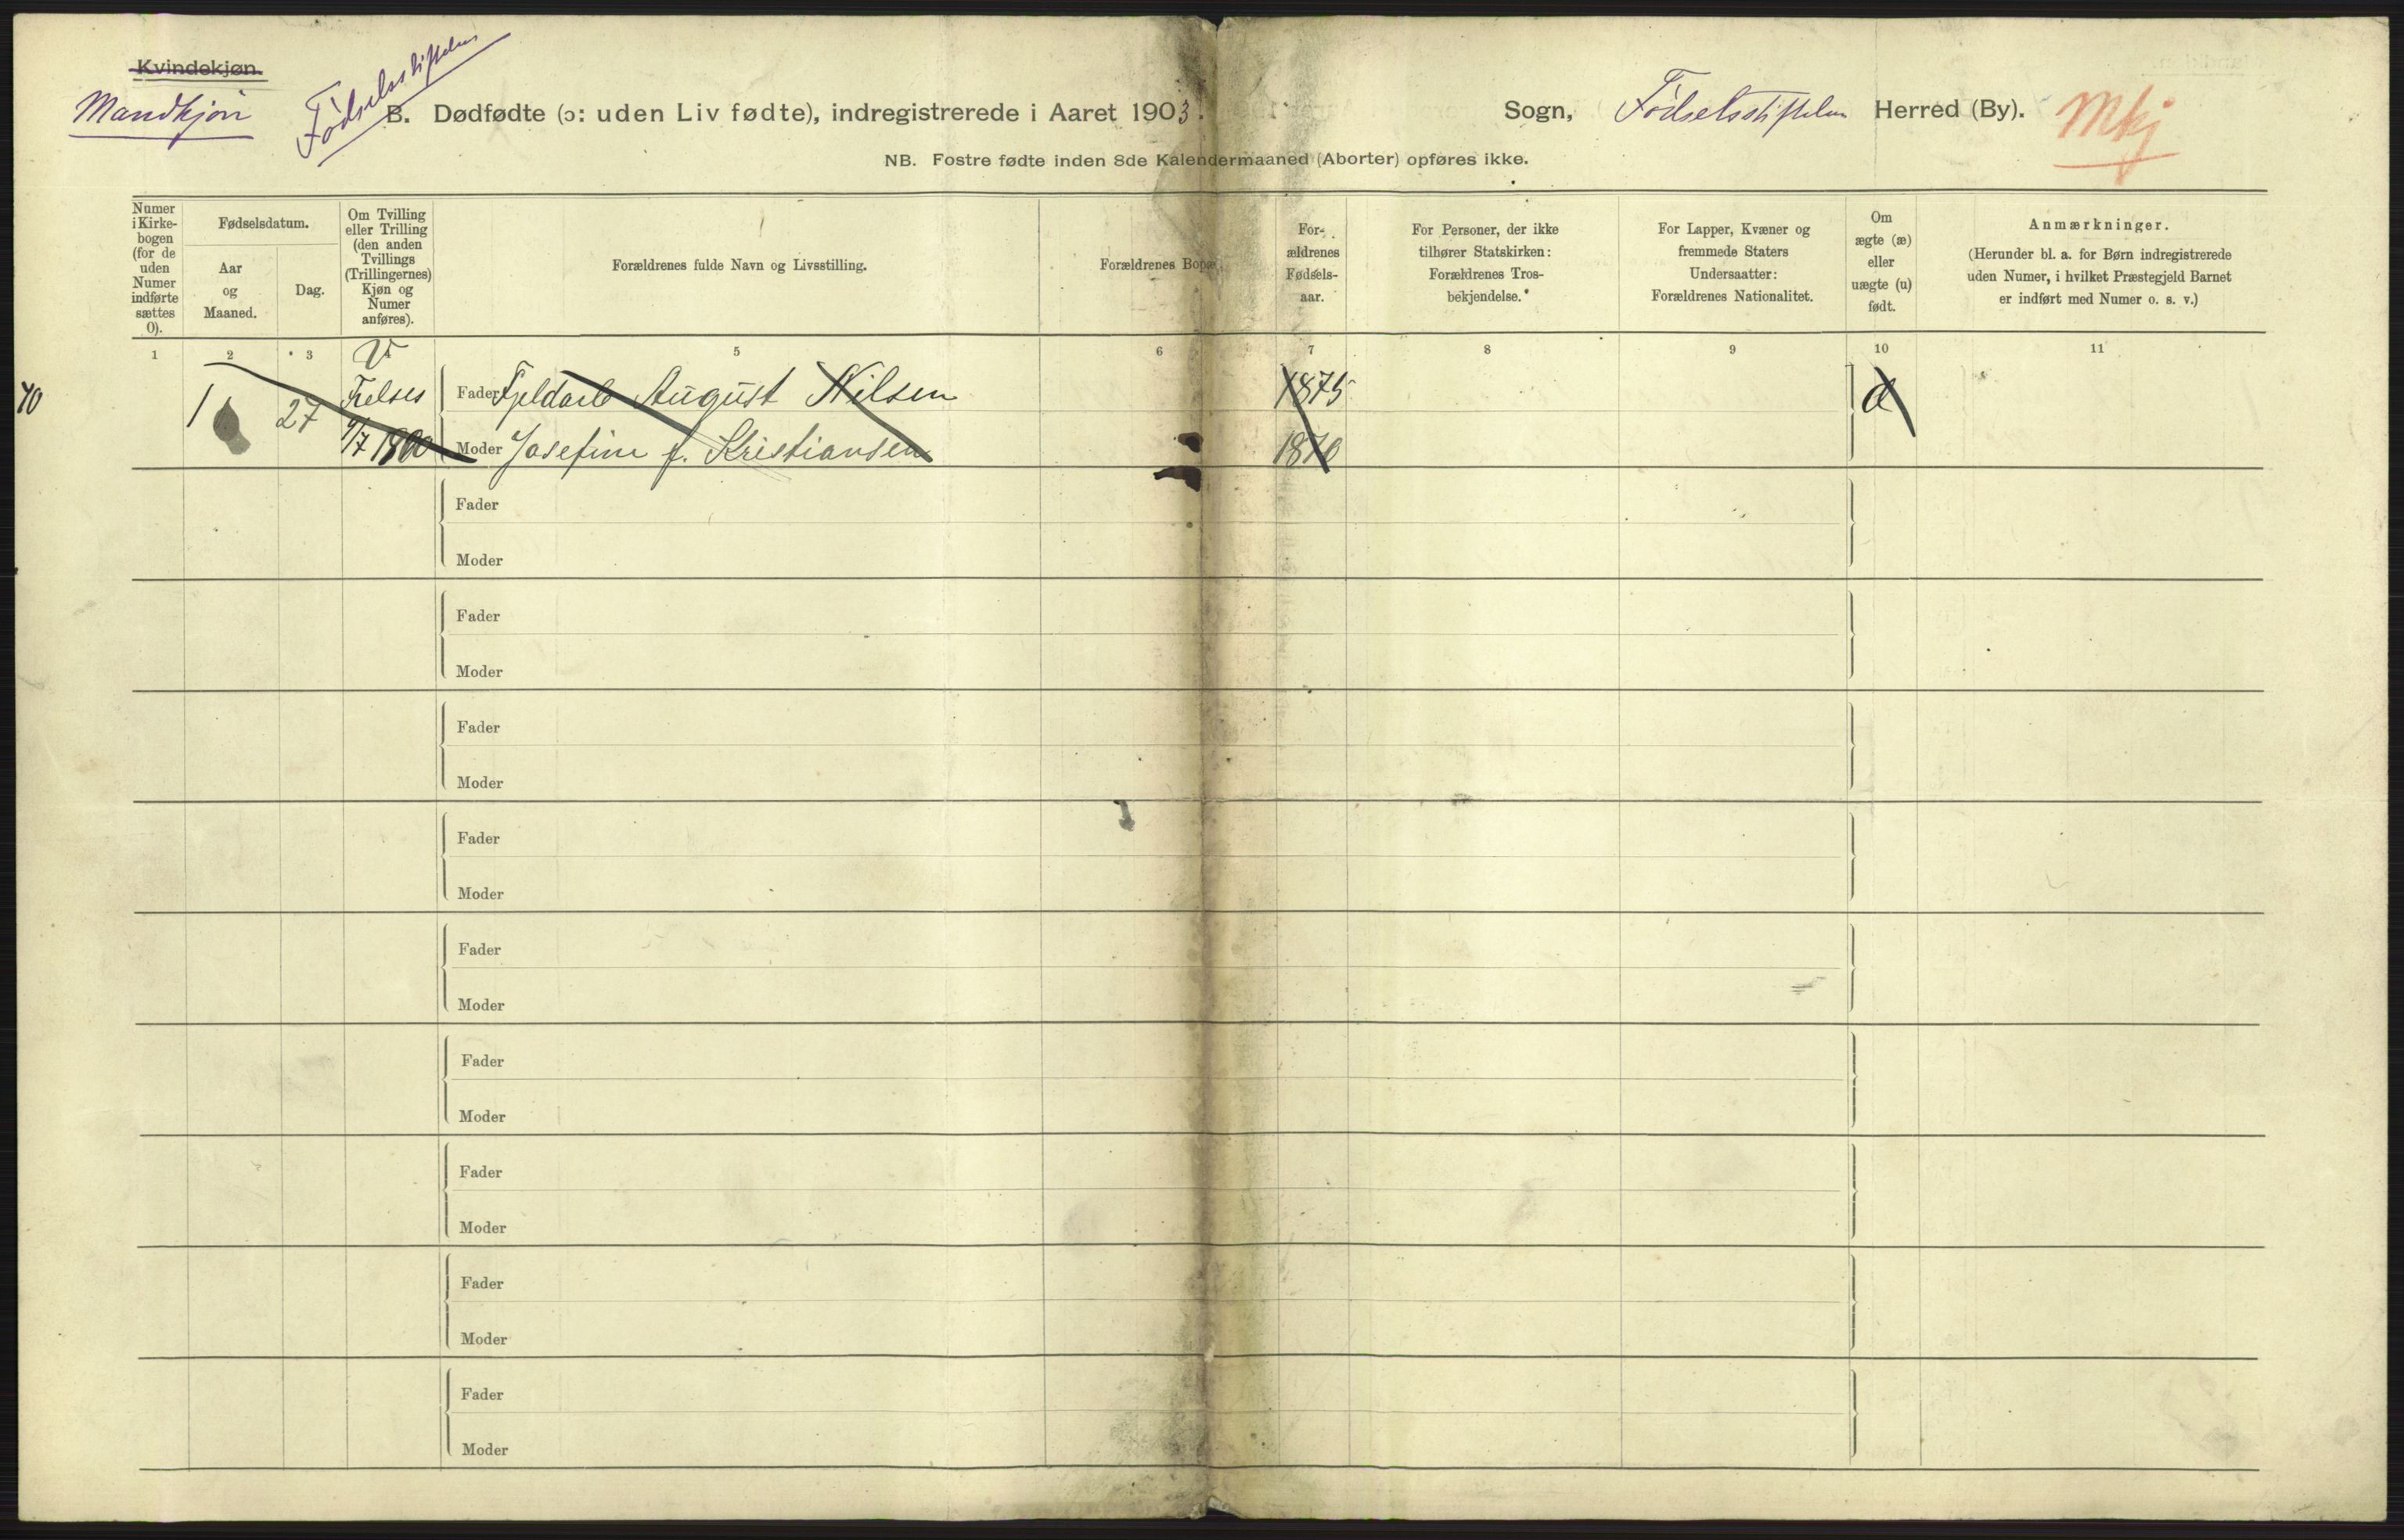 Kvindekjøn.
Mandkjøn
Fødselsstiftelsen
B. Dødfødte (ɔ: uden Liv fødte), indregistrerede i Aaret 1903.
Sogn, Fødselsstiftelsen Herred (By).
Mkj
NB. Fostre fødte inden 8de Kalendermaaned (Aborter) opføres ikke.
Numer i Kirke-bogen (for de uden Numer indførte sættes 0).
Fødselsdatum.
Aar og Maaned.
Dag.
Om Tvilling eller Trilling (den anden Tvillings (Trillingernes) Kjøn og Numer anføres).
Forældrenes fulde Navn og Livsstilling.
Forældrenes Bopæ
For-ældrenes Fødsels-aar.
For Personer, der ikke tilhører Statskirken: Forældrenes Tros-bekjendelse.
For Lapper, Kvæner og fremmede Staters Undersaatter: Forældrenes Nationalitet.
Om ægte (æ) eller uægte (u) født.
Anmærkninger.
(Herunder bl. a. for Børn indregistrerede uden Numer, i hvilket Præstegjeld Barnet er indført med Numer o. s. v.)
1 2 3 5 6 7 8 9 10 11
40
1 27
Fader August Nilsen 1875
1900 Moder Josefine f. Kristiansen 1870
Fader
Moder
Fader
Moder
Fader
Moder
Fader
Moder
Fader
Moder
Fader
Moder
Fader
Moder
Fader
Moder
Fader
Moder